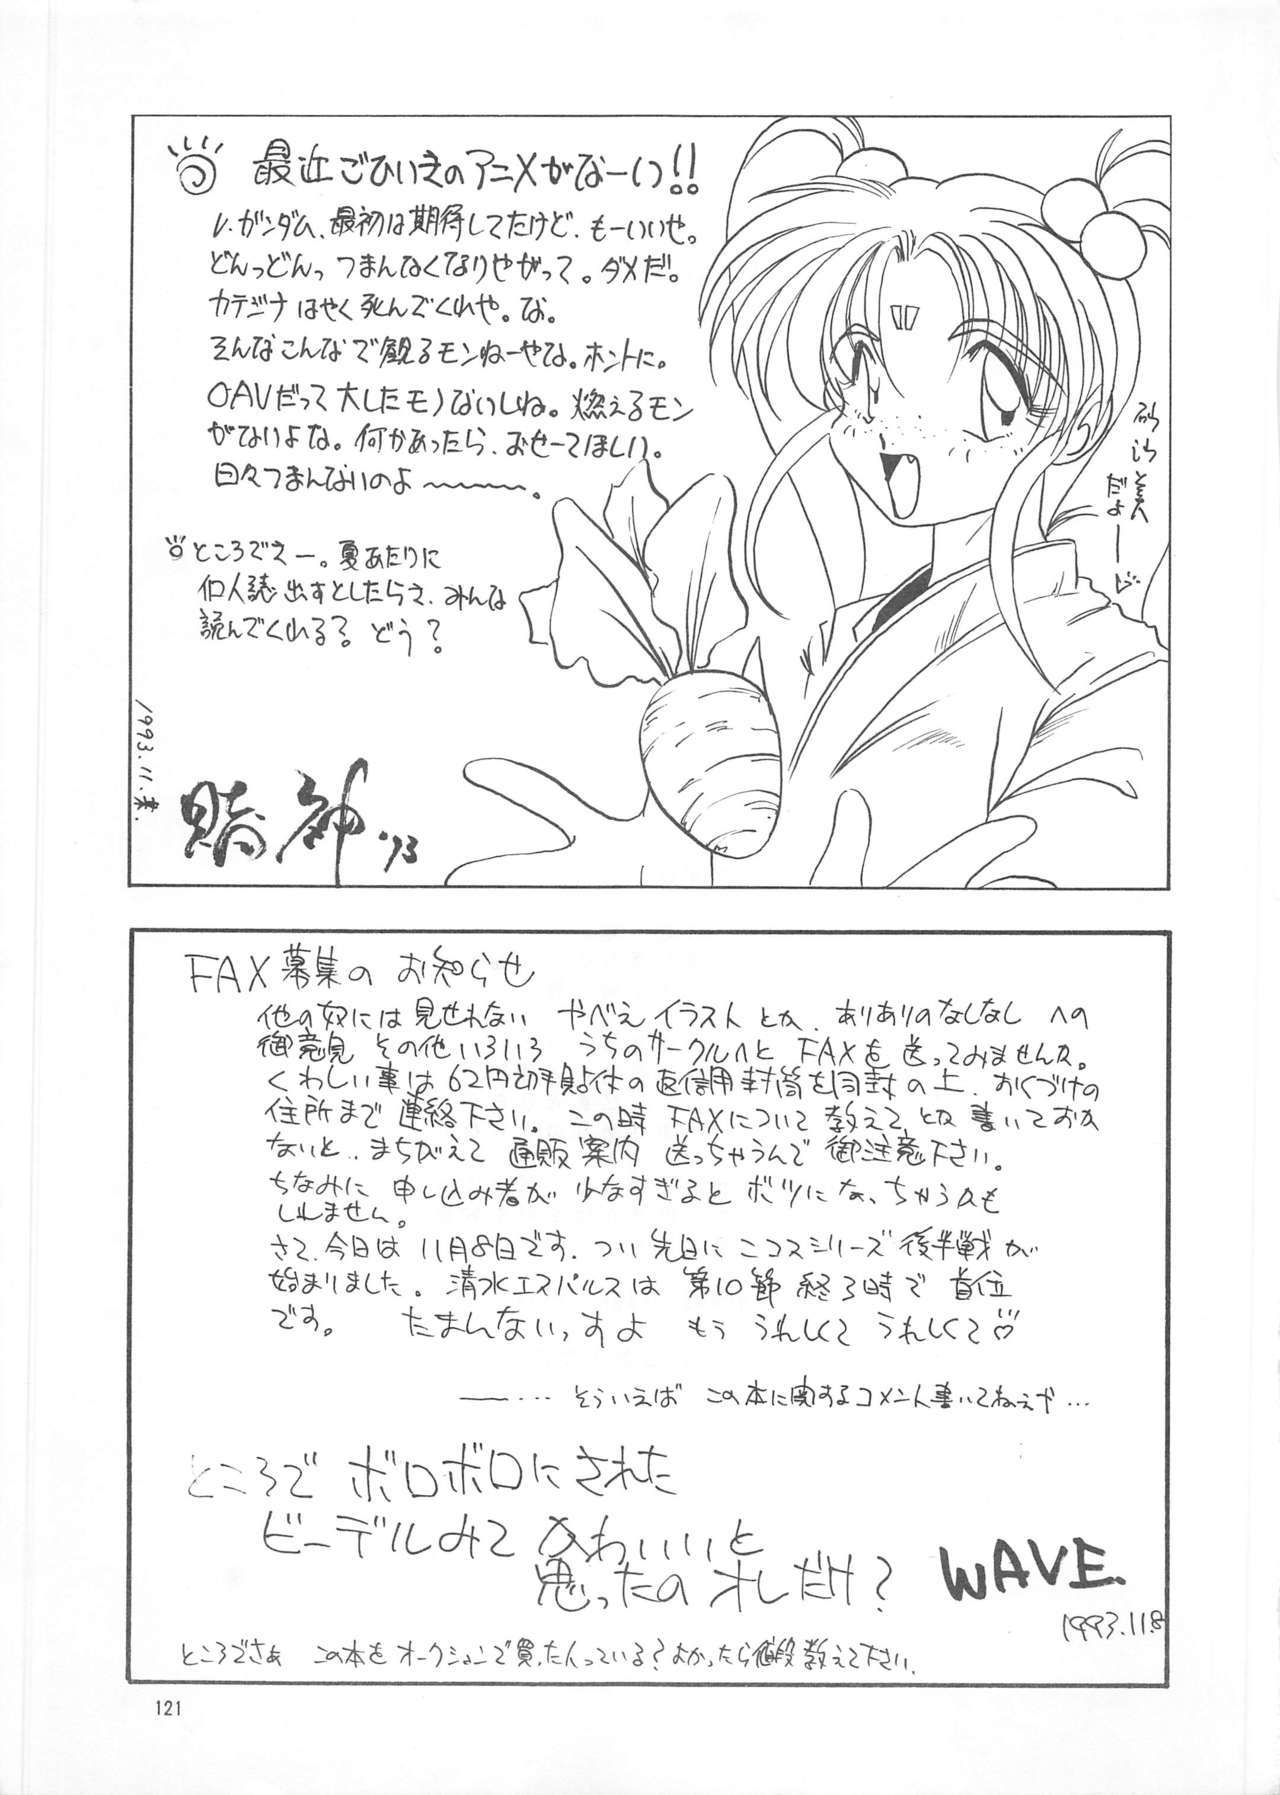 最近ごひいきのアニメがなーいっ!!
V.ガンダム、最初は期待してたけど、もーいいや。
どんっどんっ つまんなくなりやがって。ダメだ。
カテジナ はやく死んでくれや。な。
そんなこんなで観るモンねーやな。ホントに。
OAVだって大したモノないしね。燃えるモン
がないよな。何かあったら、おせーてほしい。
日々つまんないのよ〜〜〜。
砂沙美
だよー
ところでえー。夏あたりに
個人誌出すとしたらさ、みんな
読んでくれる？どう？
1993.11.末.
賭神 '93
FAX募集の お知らせ
他の奴には見せれない やべえイラストとか、ありありのなしなし への
御意見 その他いろいろ うちのサークルへと FAXを送ってみませんか。
くわしい事は62円切手貼付の返信用封筒を同封の上、おくづけの
住所まで 連絡下さい。この時 FAXについて教えて、とか書いておか
ないと、まちがえて 通販案内 送っちゃうんで 御注意下さい。
ちなみに 申し込み者が 少なすぎると ボツになっちゃうかも
しれません。
さて、今日は 11月8日です。つい先日に ニコスシリーズ 後半戦が
始まりました。清水エスパルスは 第10節 終了時で 首位
です。 たまんないっすよ もう うれしくて うれしくて♡
——… そういえば この本に関するコメント書いてねえや…
ところで ボロボロにされた
ビーデルみて かわいいと
思ったの オレだけ？
WAVE.
1993.11.8
ところでさぁ この本を オークションで買った人っている？よかったら値段教えて下さい。
121